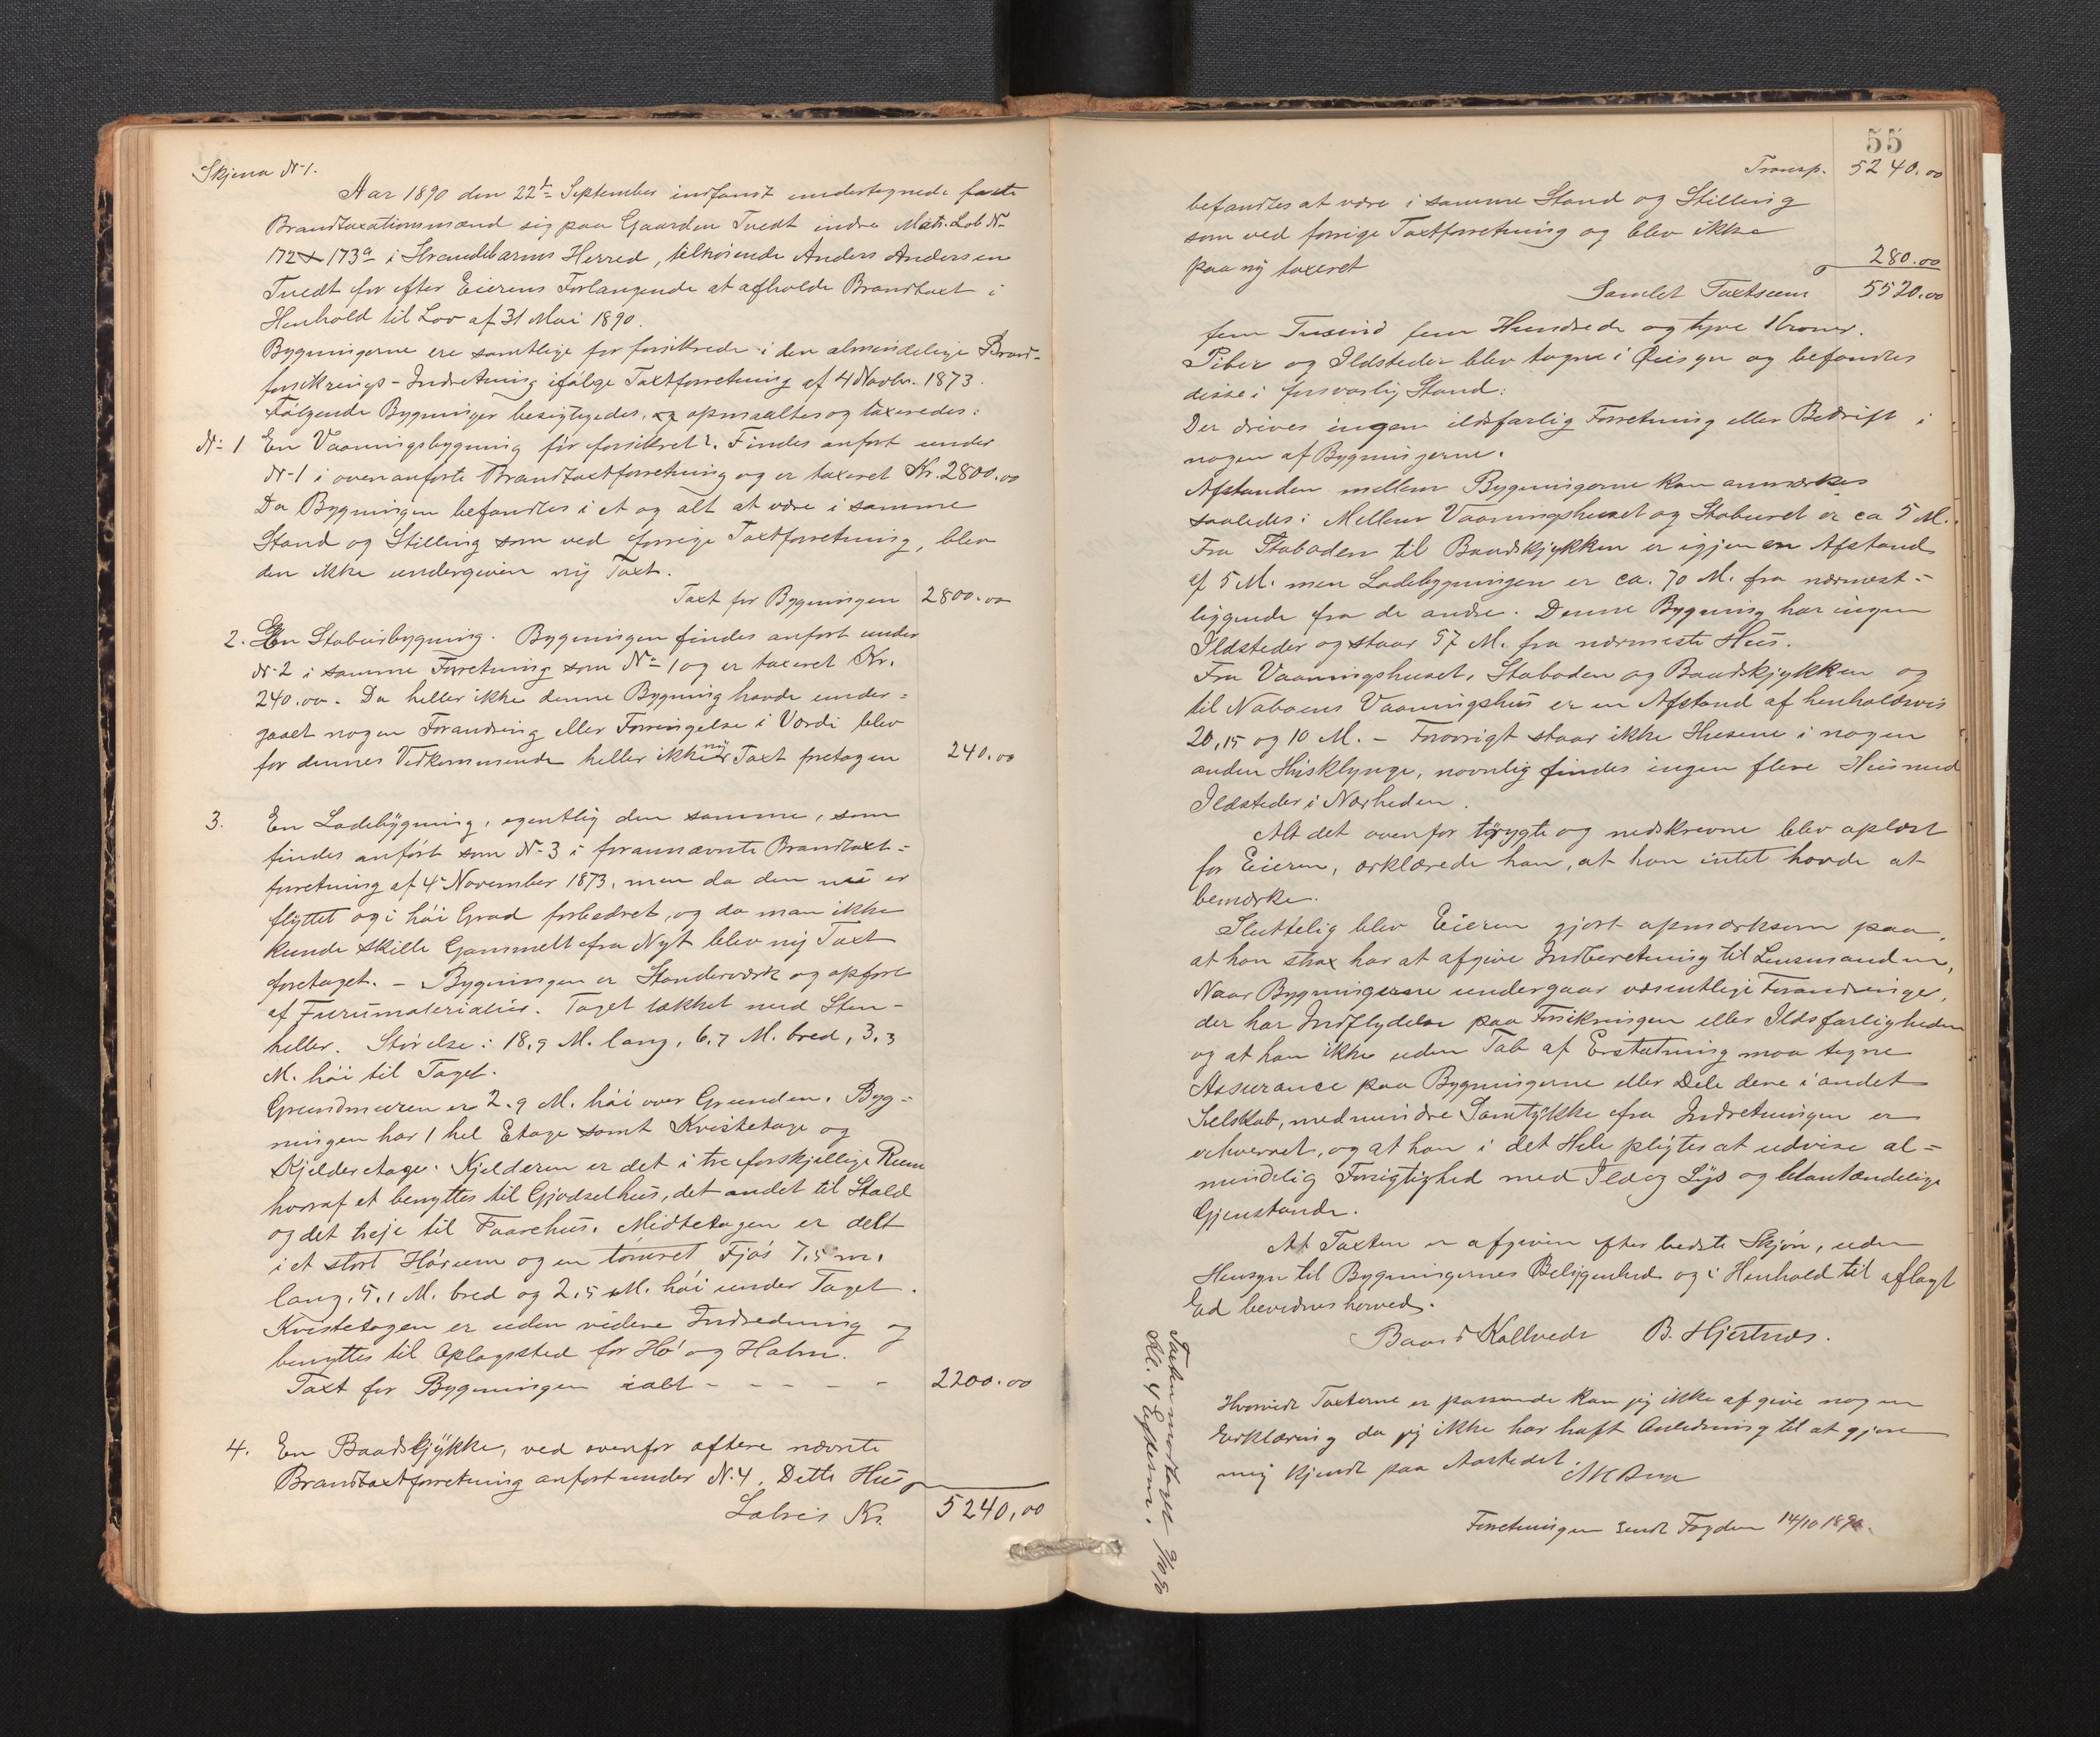 Skjema N-1.
Aar 1890 den 22de September indfandt undertegnede faste
Brandtaxationsmænd sig paa Gaarden Tvedt indre Matr. Løb N-
172 & 173a i Strandebarms Herred, tilhørende Anders Andersen
Tvedt for efter Eierens Forlangende at afholde Brandtaxt i
Henhold til Lov af 31 Mai 1890.
Bygningerne ere samtlige før forsikrede i den almindelige Brand-
forsikrings-Indretning ifølge Taxtforretning af 4 Novbr. 1873.
Følgende Bygninger besigtigedes, og opmaaltes og taxeredes:
N-1 En Vaaningsbygning før forsikret. Findes anført under
N-1 i ovenanførte Brandtaxtforretning og er taxeret Kr. 2800.00
Da Bygningen befandtes i et og alt at være i samme
Stand og Stilling som ved forrige Taxtforretning, blev
den ikke undergiven ny Taxt.
Taxt for Bygningen 2800.00
2. En Stabursbygning. Bygningen findes anført under
N-2 i samme Forretning som N-1 og er taxeret Kr.
240.00. Da heller ikke denne Bygning havde under-
gaaet nogen Forandring eller Forringelse i Værdi blev
for dennes Vedkommende heller ikke ny Taxt foretagen 240.00
3. En Ladebygning, egentlig den samme, som
findes anført som N-3 i forannævnte Brandtaxt-
forretning af 4 November 1873, men da den nu er
flyttet og i høi Grad forbedret, og da man ikke
kunde skille Gammelt fra Nyt blev ny Taxt
foretaget. - Bygningen er Standerværk og opført
af Furumaterialier. Taget takket med Sten-
heller. Størelse: 18,9 M. lang, 6,7 M. bred, 3,3
M. høi til Taget.
Grundmuren er 2.9 M. høi over Grunden. Byg-
ningen har 1 hel Etage samt Kvistetage og
Kjelderetage. Kjelderen er delt i tre forskjellige Rum
hvoraf et benyttes til Gjødselhus, det andet til Stald
og det treje til Faarehus. Midtetagen er delt
i et stort Hørum og en tømret Fjøs 7,5 m.
lang, 5,1 M. bred og 2,5 M. høi under Taget.
Kvistetagen er uden videre Indredning og
benyttes til Oplagssted for Hø og Halm.
Taxt for Bygningen ialt - - - - - 2200.00
4. En Baadskjykke, ved ovenfor oftere nævnte
Brandtaxtforretning anført under N.4. Dette Hus
Latvis Kr. 5240,00
55
Transp. 5240.00
befandtes at være i samme Stand og Stilling
som ved forrige Taxtforretning og blev ikke
paa ny taxeret 280.00
Samlet Taxtsum 5520.00
fem Tusind fem Hundrede og tyve Kroner.
Piber og Ildsteder blev tagne i Øiesyn og befandtes
disse i forsvarlig Stand:
Der drives ingen ildsfarlig Forretning eller Bedrift i
nogen af Bygningerne.
Afstanden mellem Bygningerne kan anmærkes
saaledes: Mellem Vaaningshuset og Staburet er ca 5 M.
Fra Staboden til Baadskjykken er igjen en Afstand
af 5 M. men Ladebygningen er ca. 70 M. fra nærmest-
liggende fra de andre. Denne Bygning har ingen
Ildsteder og staar 57 M. fra nærmeste Hus.
Fra Vaaningshuset, Staboden og Baadskjykken og
til Naboens Vaaningshus er en Afstand af henholdsvis
20, 15 og 10 M. - Forøvrigt staar ikke Husene i nogen
anden Husklynge, navnlig findes ingen flere Hus med
Ildsteder i Nærheden.
Alt det ovenfor trygte og nedskrevne blev oplæst
for Eieren, erklærede han, at han intet havde at
bemærke.
Sluttelig blev Eieren gjort opmærksom paa,
at han strax har at afgive Indberetning til Lensmanden,
Naar Bygningerne undergaar væsentlige Forandringer,
der har Indflydelse paa Forsikringen eller Ildsfarligheden
og at han ikke uden Tab af Erstatning maa tegne
Assurance paa Bygningerne eller Dele dere i andet
Selskab, medmindre Samtykke fra Indretningen er
erhvervet, og at han i det Hele pligtes at udvise al-
mindelig Forsigtighed med Ild og Lys og letantændelige
Gjenstande.
At Taxten er afgiven efter bedste Skjøn, uden
Hensyn til Bygningernes Beligenhed og i Henhold til aflagt
Ed bevidnes herved.
Baard Kallvedt B. Hjertnæs.
Hvorvidt Taxterne er passende kan jeg ikke afgive nogen
Erklæring da jeg ikke har haft Anledning til at gjøre
mig kjendt paa Aastedet.
Forretningen sendt Fogden 14/10 1890.
Taxten modtaget 9/10 90
Kl. 4 Eftermd.